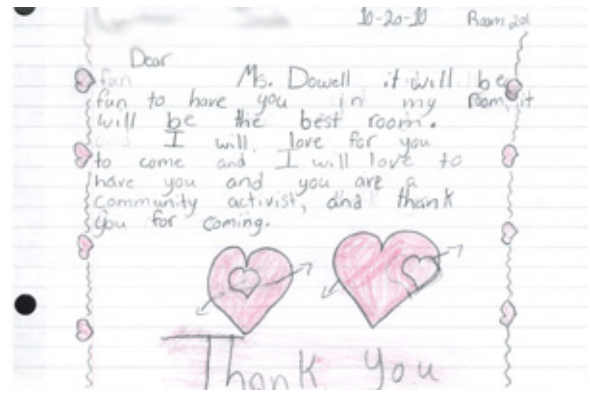 10-20-10 Room 201
Dear
Ms. Dowell it will be
fun to have you in my room, it
will be the best room.
I will love for you
to come and I will love to
have you and you are a
community activist, and thank
you for coming.
Thank You